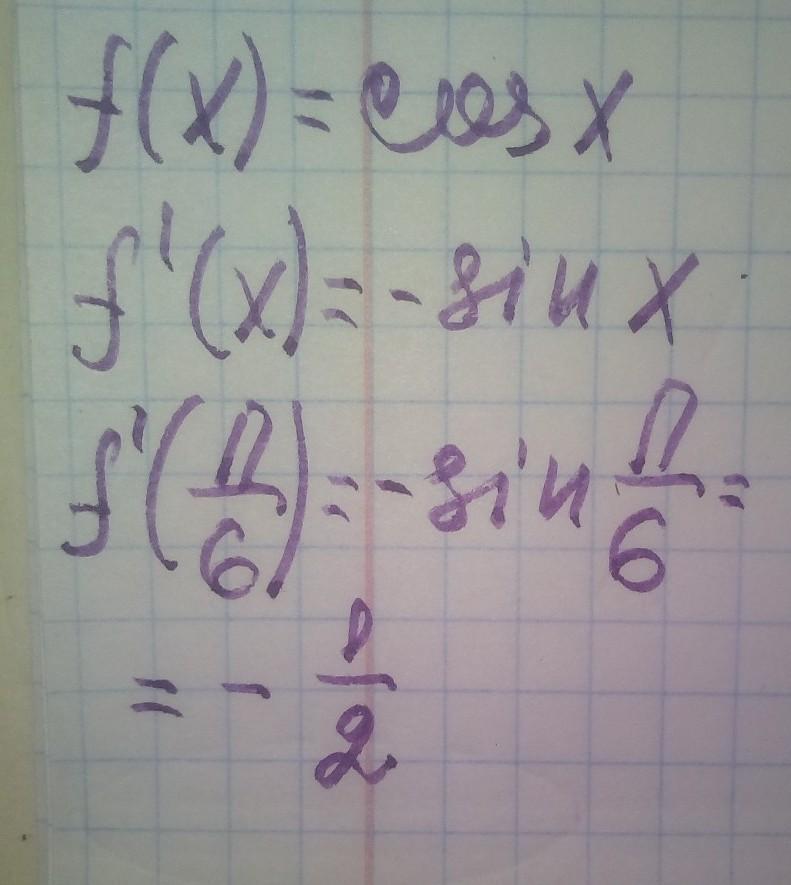 f(x) = cos x
f'(x) = - sin x
f'(π/6) = - sin π/6 =
= - 1/2